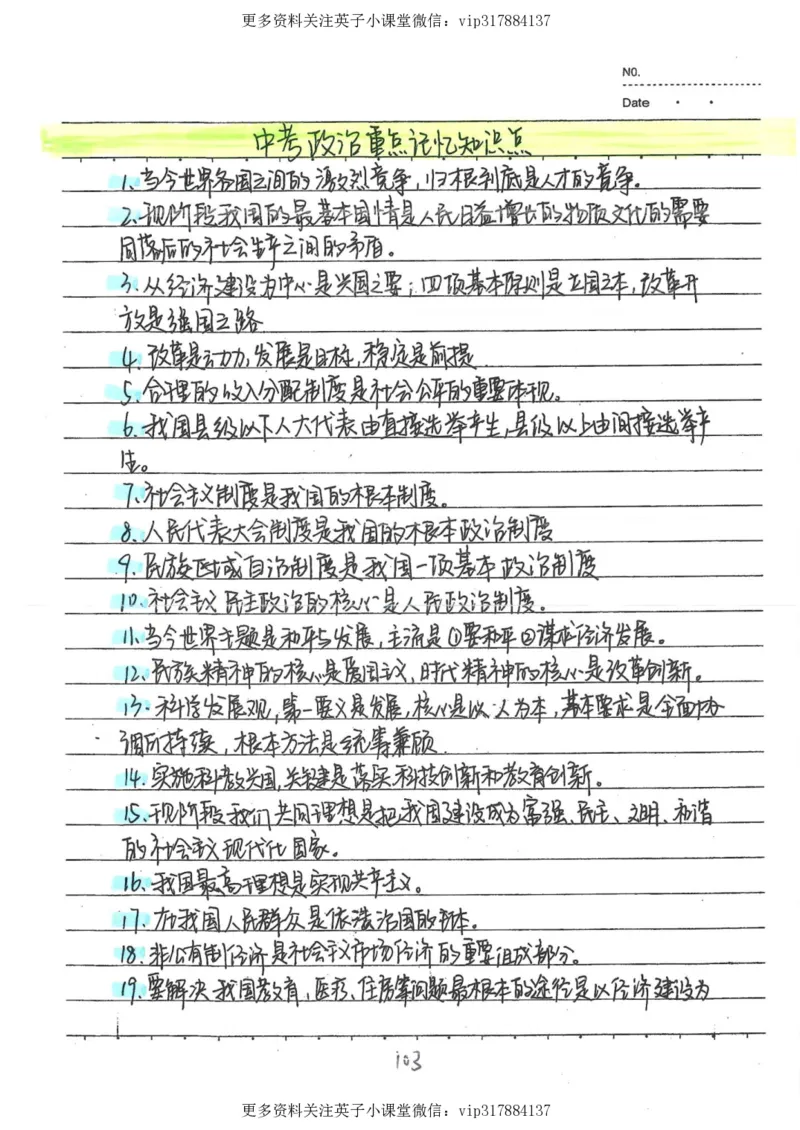 更多资料关注英子小课堂微信：vip317884137
NO.
Date
中考政治重点记忆知识点
1、当今世界各国之间的激烈竞争，归根到底是人才的竞争。
2、现阶段我国的最基本国情是人民日益增长的物质文化的需要
同落后的社会生产之间的矛盾。
3、从经济建设为中心是兴国之要；四项基本原则是立国之本，改革开
放是强国之路
4、改革是动力，发展是目标，稳定是前提
5、合理的收入分配制度是社会公平的重要体现。
6、我国县级以下人大代表由直接选举产生，县级以上由间接选举产
生。
7、社会主义制度是我国的根本制度。
8、人民代表大会制度是我国的根本政治制度
9、民族区域自治制度是我国一项基本政治制度
10、社会主义民主政治的核心是人民政治制度。
11、当今世界主题是和平与发展，主流是①要和平②谋求经济发展。
12、民族精神的核心是爱国主义，时代精神的核心是改革创新。
13、科学发展观，第一要义是发展，核心是以人为本，基本要求是全面协
调可持续，根本方法是统筹兼顾
14、实施科教兴国，关键是落实科技创新和教育创新。
15、现阶段我们共同理想是把我国建设成为富强、民主、文明、和谐
的社会主义现代化国家。
16、我国最高理想是实现共产主义。
17、在我国人民群众是依法治国的主体。
18、非公有制经济是社会主义市场经济的重要组成部分。
19、要解决我国教育，医疗、住房等问题最根本的途径是以经济建设为
103
更多资料关注英子小课堂微信：vip317884137